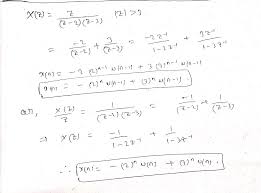 X(z) = z / (z-2)(z-3)   |z| > 3
= -2/(z-2) + 3/(z-3) = -2z⁻¹/1-2z⁻¹ + 3z⁻¹/1-3z⁻¹
x(n) = -2(2)ⁿ⁻¹ u(n-1) + 3(3)ⁿ⁻¹ u(n-1)
x(n) = -(2)ⁿ u(n-1) + (3)ⁿ u(n-1)
or, X(z)/z = 1/(z-2)(z-3) = -1/(z-2) + 1/(z-3)
⇒ X(z) = -1/1-2z⁻¹ + 1/1-3z⁻¹
∴ x(n) = -(2)ⁿ u(n) + (3)ⁿ u(n).